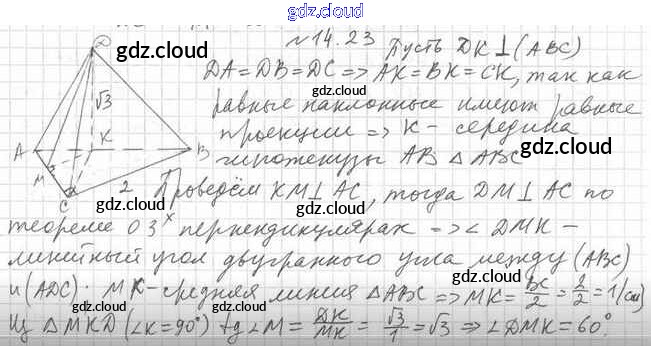 gdz.cloud
№14.23 Пусть DK⊥(ABC)
gdz.cloud
DA=DB=DC=>AK=BK=CK, так как
gdz.cloud
равные наклонные имеют равные
проекции => K - середина
гипотенузы AB △ABC
gdz.cloud
D
√3
A
K
B
M
C
2
Проведём KM⊥AC, тогда DM⊥AC по
gdz.cloud
теореме о 3ˣ перпендикулярах => ∠DMK -
gdz.cloud
линейный угол двугранного угла между (ABC)
gdz.cloud
и (ADC). MK-средняя линия △ABC => MK = BC/2 = 2/2 = 1(см)
gdz.cloud
Из △MKD (∠K=90°) tg∠M = DK/MK = √3/1 = √3 => ∠DMK=60°.
gdz.cloud